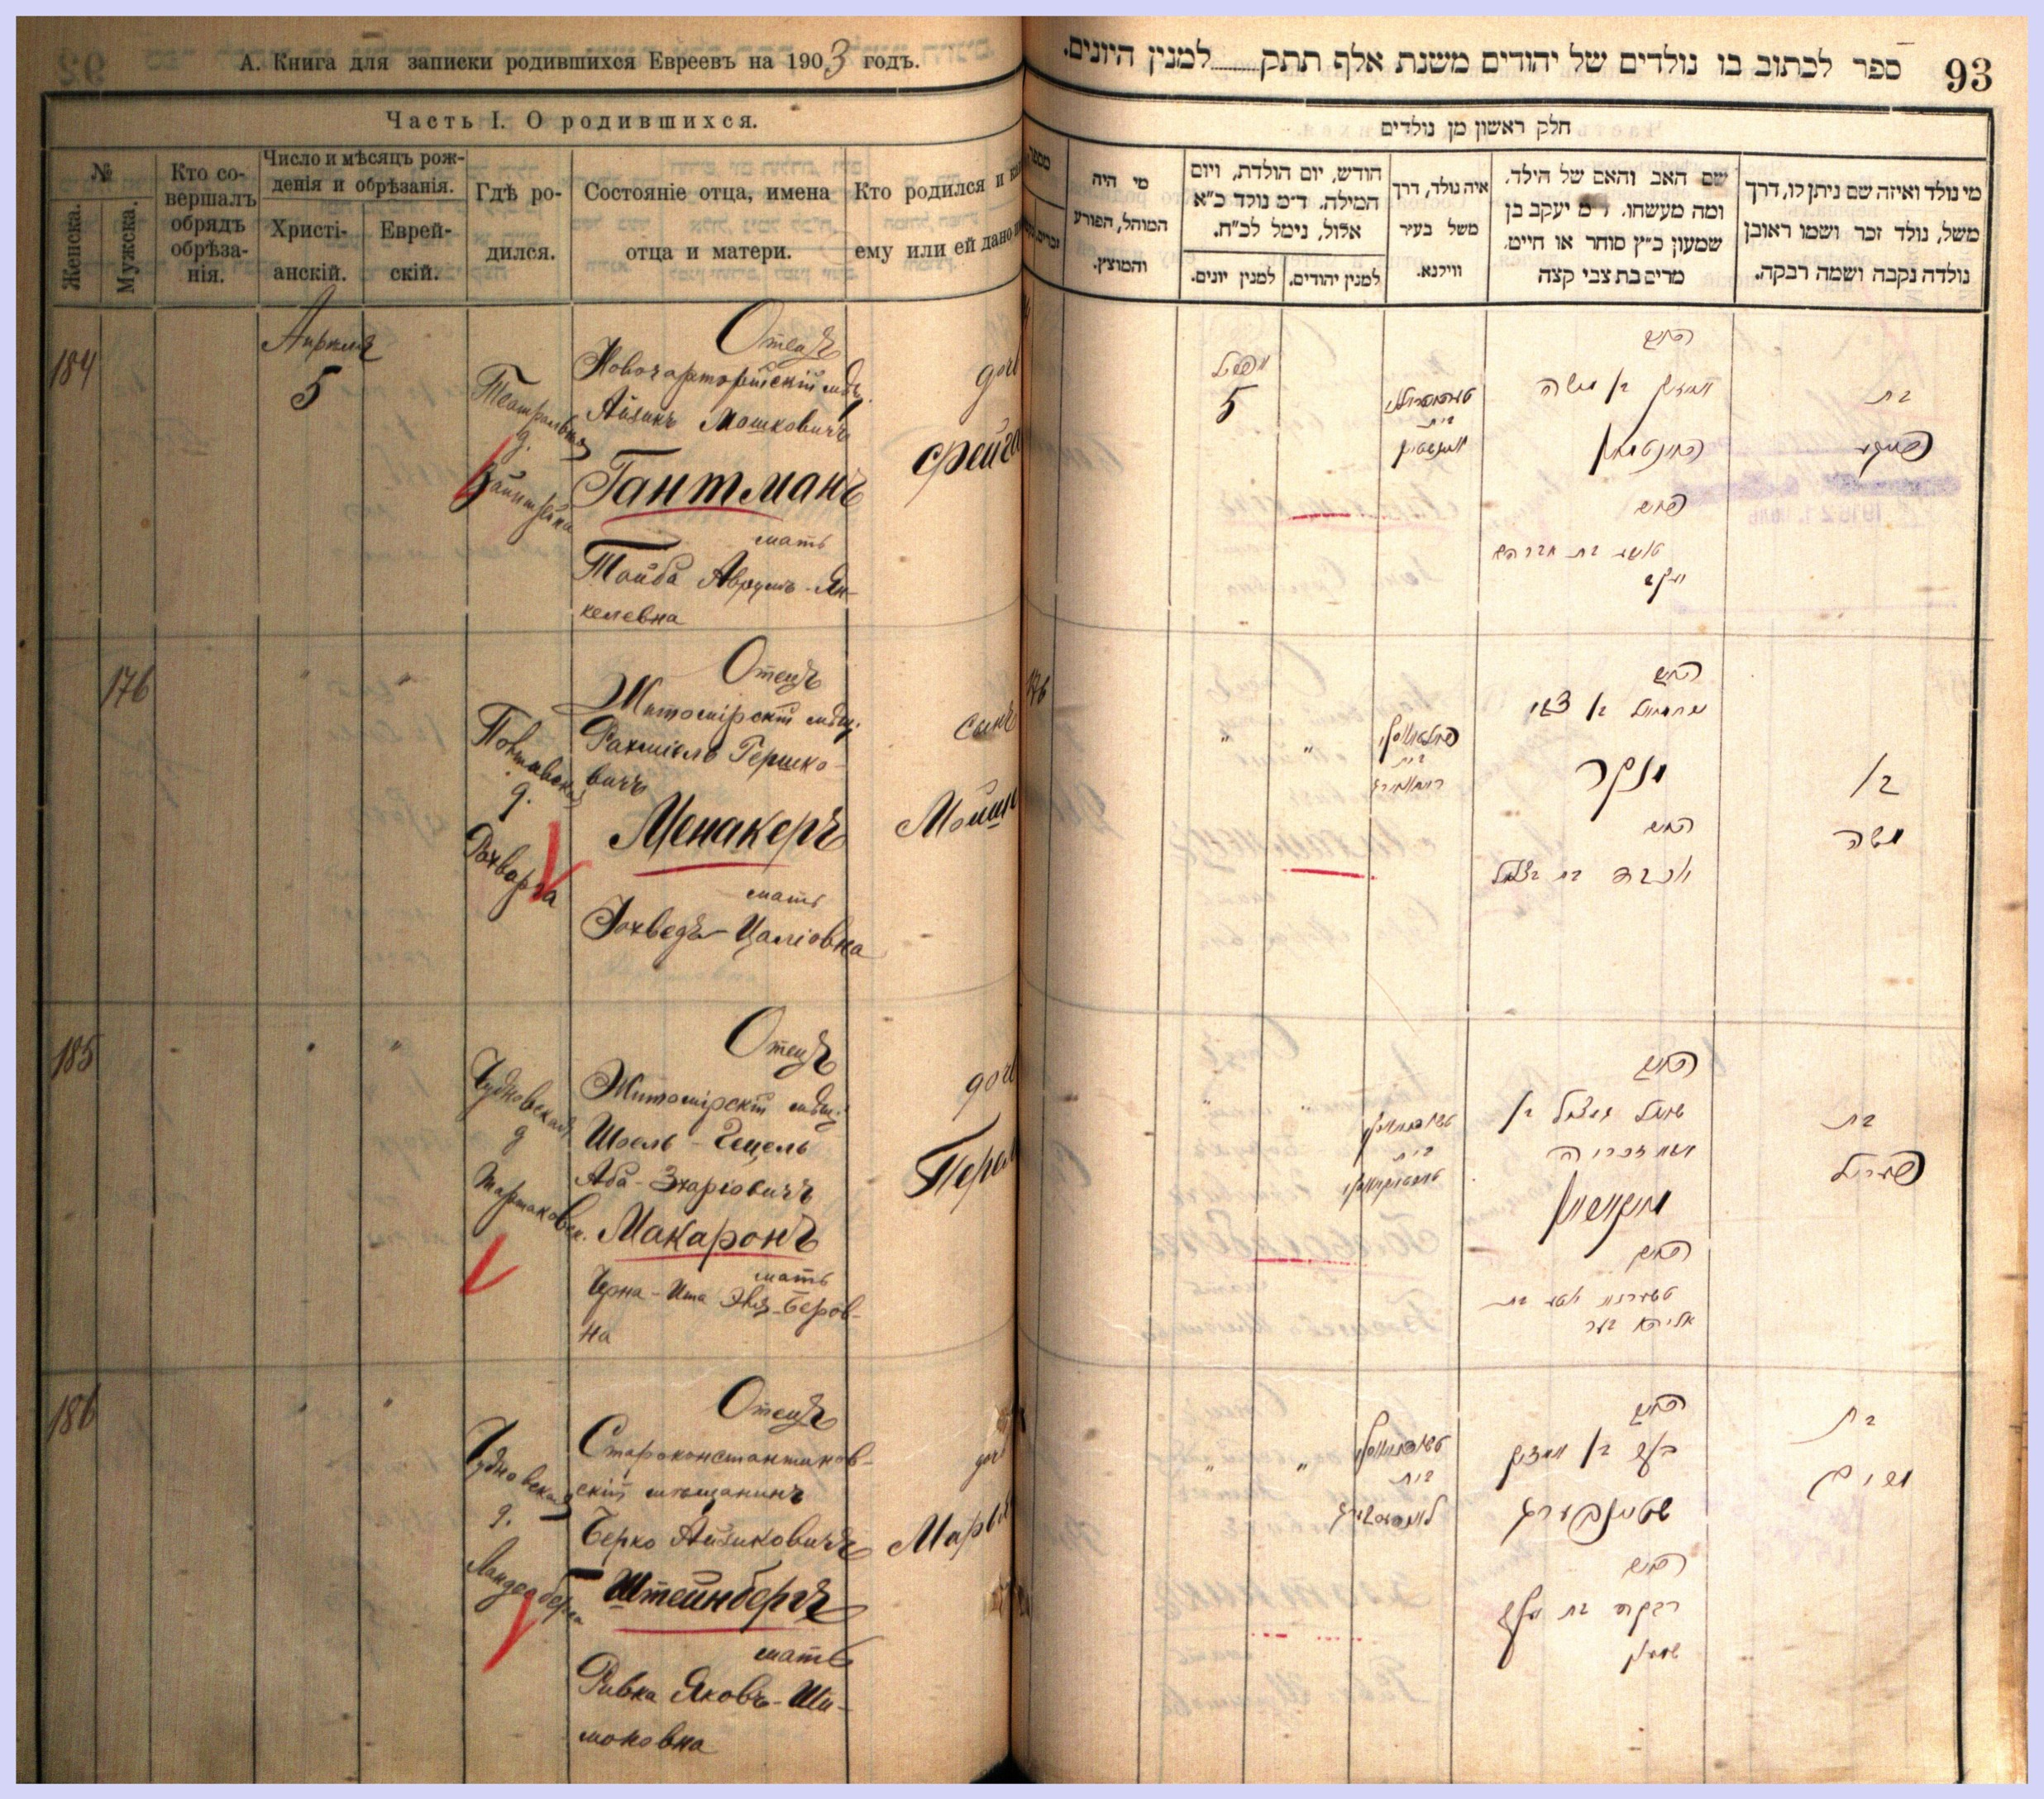 А. Книга для записки родившихся Евреевъ на 1903 годъ.
Часть I. О родившихся.
№
Женска.
Мужска.
Кто со-
вершалъ
обрядъ
обрѣза-
нія.
Число и мѣсяцъ рож-
денія и обрѣзанія.
Христі-
анскій.
Еврей-
скій.
Гдѣ ро-
дился.
Состояніе отца, имена
отца и матери.
Кто родился и
ему или ей дано
184
Апрѣля
5
д.
Отецъ
Новочарторійскій мѣщ.
Айзикъ Мошковичъ
Гантманъ
мать
Тойба Аврумъ-Ян-
келевна
дочь
Фрейга
176
д.
Отецъ
Житомірскій мѣщ.
Рахміель Гершко-
вичъ
Менакеръ
мать
Іохведъ-Цаліовна
сынъ
Мошк
185
Чудновская
д
Отецъ
Житомірскій мѣщ.
Шоель-Гецель
Аба-Зхаріовичъ
Макаронъ
мать
Черна-Ита Эля-Беров-
на
дочь
Перел
186
Чудновская
д.
Ландесберга
Отецъ
Староконстантинов-
скій мѣщанинъ
Берко Айзиковичъ
Штейнбергъ
мать
Ривка Яковъ-Ши-
моновна
дочь
93
ספר לכתוב בו נולדים של יהודים משנת אלף תתק למנין היונים.
חלק ראשון מן נולדים
מי נולד ואיזה שם ניתן לו, דרך
משל, נולד זכר ושמו ראובן
נולדה נקבה ושמה רבקה.
שם האב והאם של הילד,
ומה מעשהו. ר״מ יעקב בן
שמעון כ״ץ סוחר או חייט.
מרים בת צבי קצה
איה נולד, דרך
משל בעיר
ווילנא.
חודש, יום הולדת, ויום
המילה. ד״מ נולד כ״א
אלול, נימל לכ״ח.
למנין יהודים.
למנין יונים.
מי היה
המוהל, הפורע
והמוצץ.
בת
האב
אייזיק בן משה
האנטמאן
האם
טויבא בת אברהם
יעקב
אפריל
5
בית
176
בן
משה
האב
ירחמיאל בן צבי
מנקר
האם
יוכבד בת בצלאל
בית
בת
פעריל
האב
שואל געצל בן
אבא זכריה
מאקאראן
האם
טשערנא יטא בת
אליהו בער
בית
בת
מרים
האב
בערל בן אייזיק
שטיינבערג
האם
רבקה בת יעקב
שמעון
בית
לאנדעסבערג